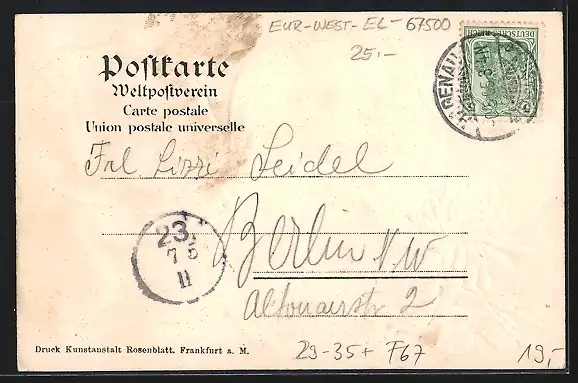 EUR-WEST-EL-67500
25.-
Postkarte
Weltpostverein
Carte postale
Union postale universelle
DEUTSCHES REICH
HAGENAU
Frl Lizzi Seidel
23.
7 5
11
Berlin NW
Altonaerstr 2
Druck Kunstanstalt Rosenblatt. Frankfurt a. M.
29-35+ F67
19,-